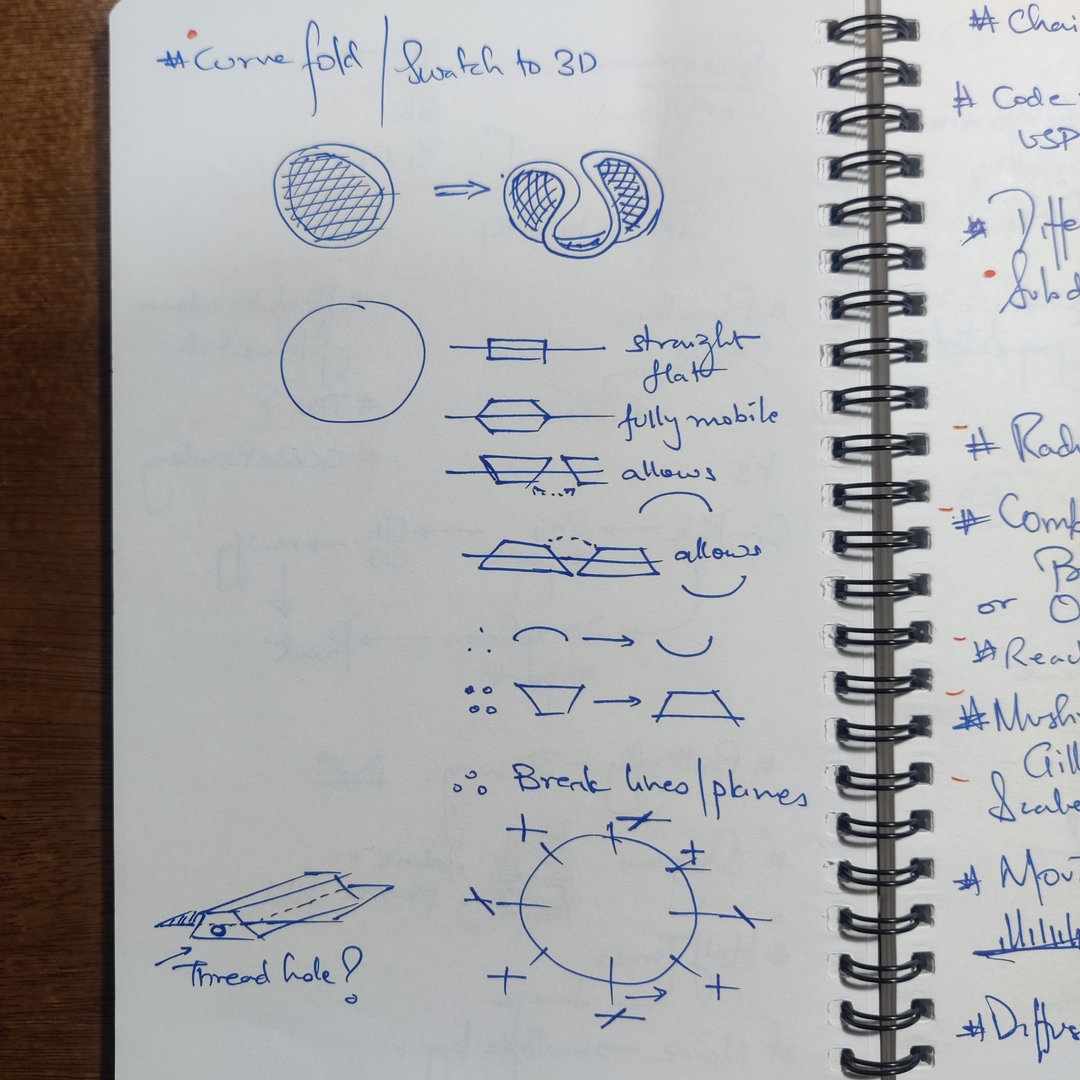 # Curve fold / Swatch to 3D
straight
flat
fully mobile
allows
allows
Break lines/planes
Thread hole?
# Chai
# Code
USP
# Diffe
# Rad
# Comp
or O
# Read
# Mush
Gill
# Mov
# Diffus